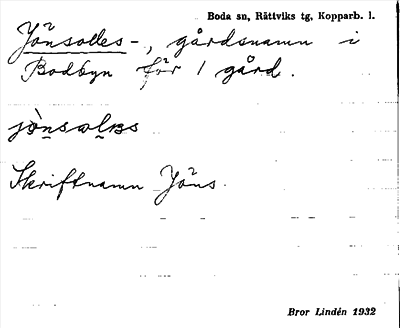 Boda sn, Rättviks tg, Kopparb. l.
Jönsolles-, gårdsnamn i
Bodbyn för 1 gård.
Skriftnamn Jöns.
Bror Lindén 1932